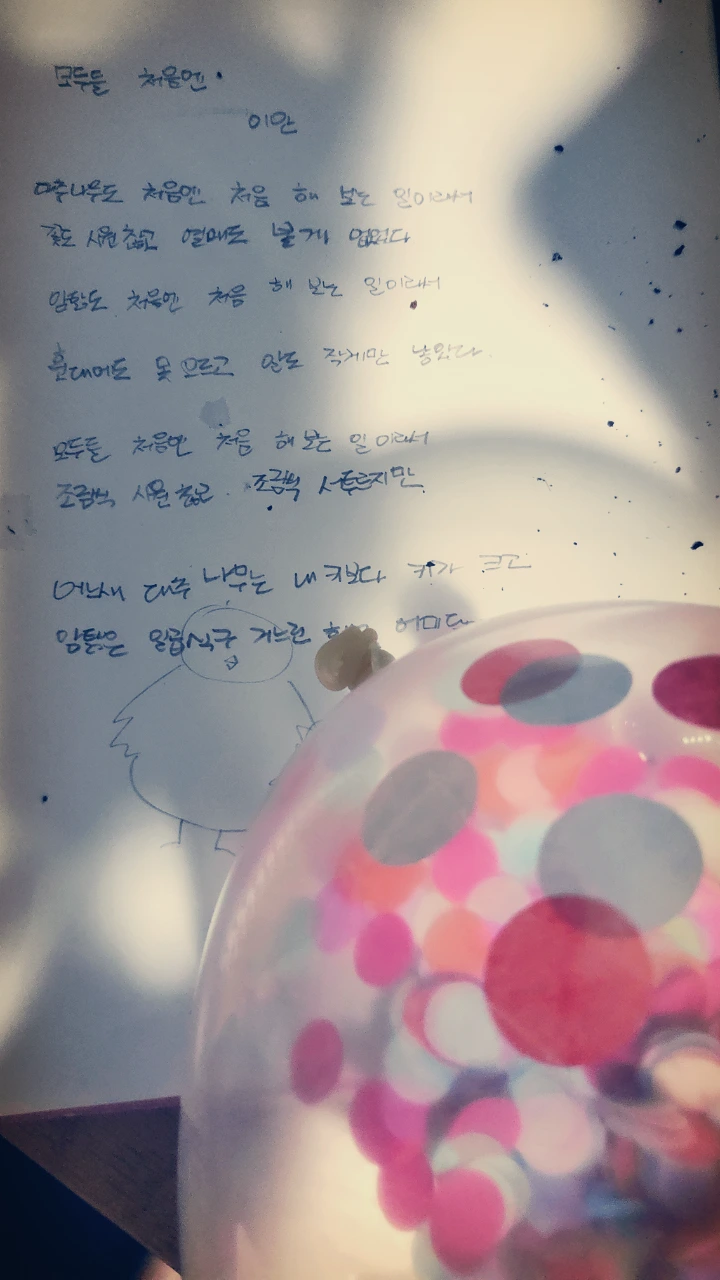 모두들 처음엔.
이안
대추나무도 처음엔 처음 해 보는 일이라서
꽃도 시원찮고 열매도 볼게 없었다
암탉도 처음엔 처음 해 보는 일이라서
횃대에도 못 오르고 알도 작게만 낳았다.
모두들 처음엔 처음 해보는 일이라서
조금씩 시원찮고 조금씩 서투르지만
어느새 대추 나무는 내 키보다 키가 크고
암탉은 일곱식구 거느린 어미다